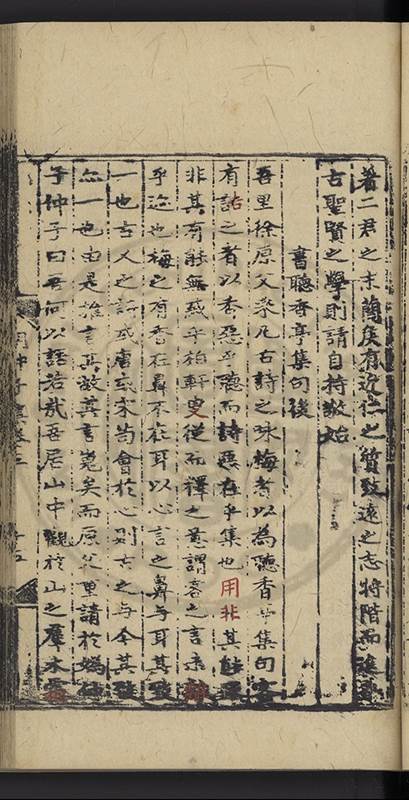 著二君之末蘭矦有近仁之質致遠之志將階而達
古聖賢之學則請自持敬始
書聽香亭集句後
吾里徐原父桼凡古詩之咏梅者以為聽香亭集句客
有詰之者以香惡乎聽而詩惡在乎集也用非其能
非其有能無惑乎柏軒叟從而釋之意謂客之言未
乎迩也梅之有香在鼻不在耳以心言之鼻与耳其致
一也古人之詩或唐或宋苟會於心則古之与今其致
亦一也由是雖言其放其言嵬矣而原父重請於
子仲子曰吾何以語若哉吾居山中觀於山之羣木